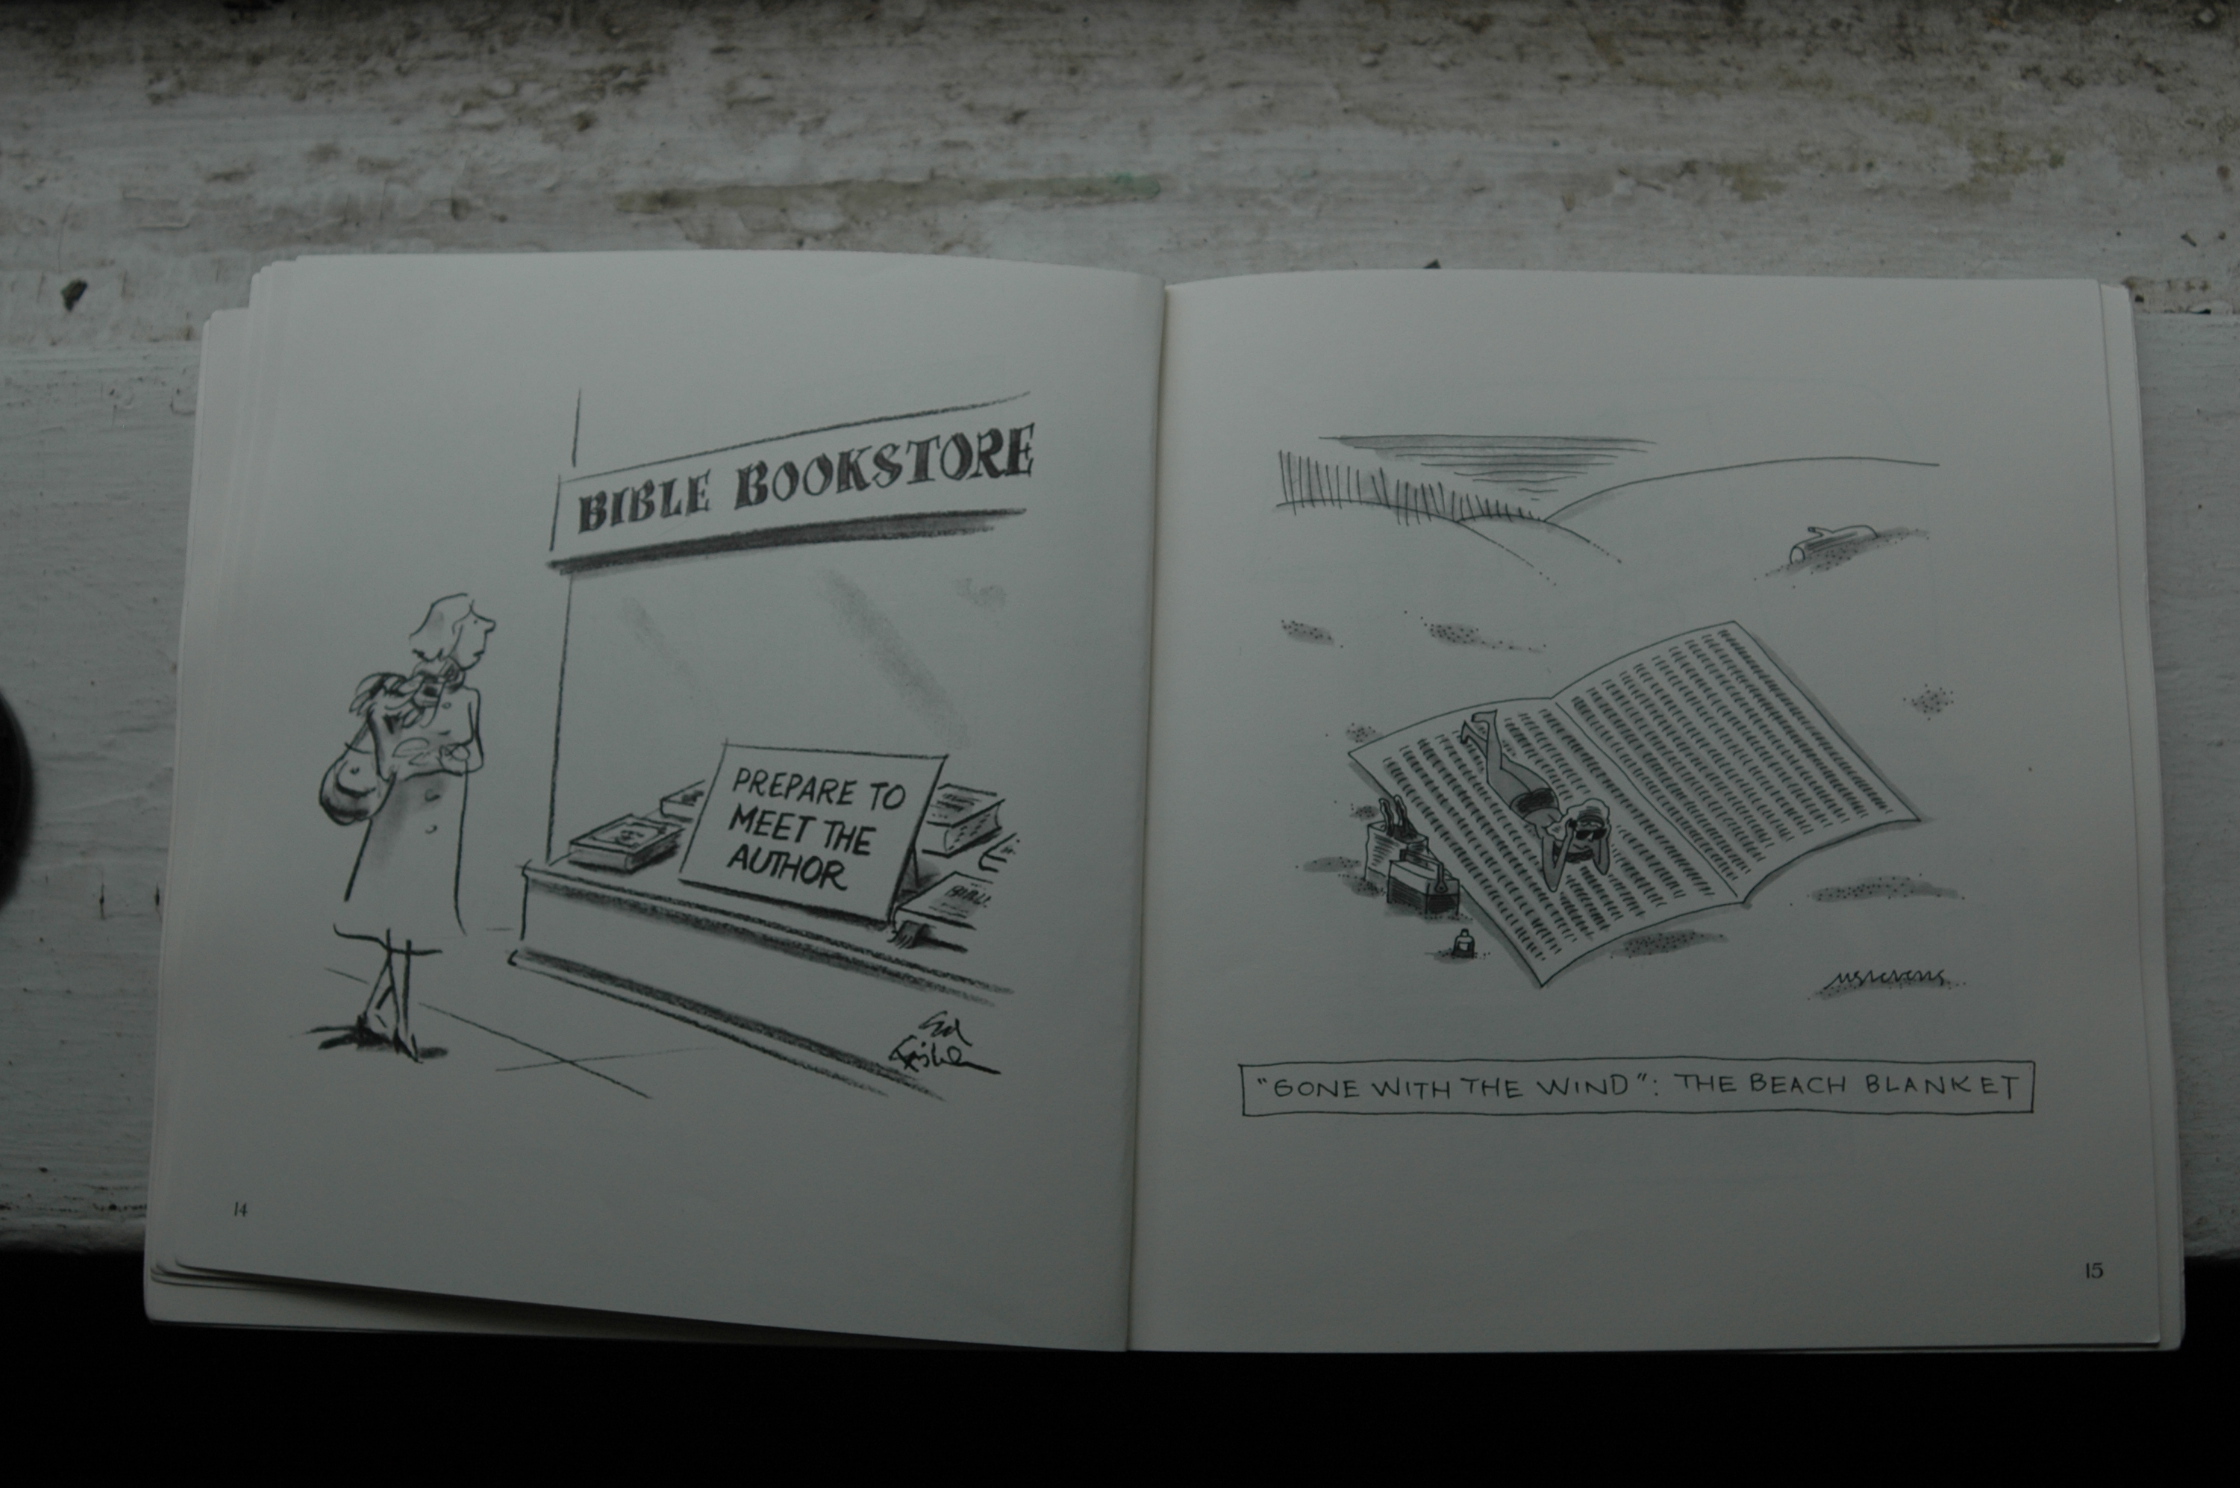 BIBLE BOOKSTORE
PREPARE TO
MEET THE
AUTHOR
BIBLE
Ed
Fisher
14
"GONE WITH THE WIND": THE BEACH BLANKET
15